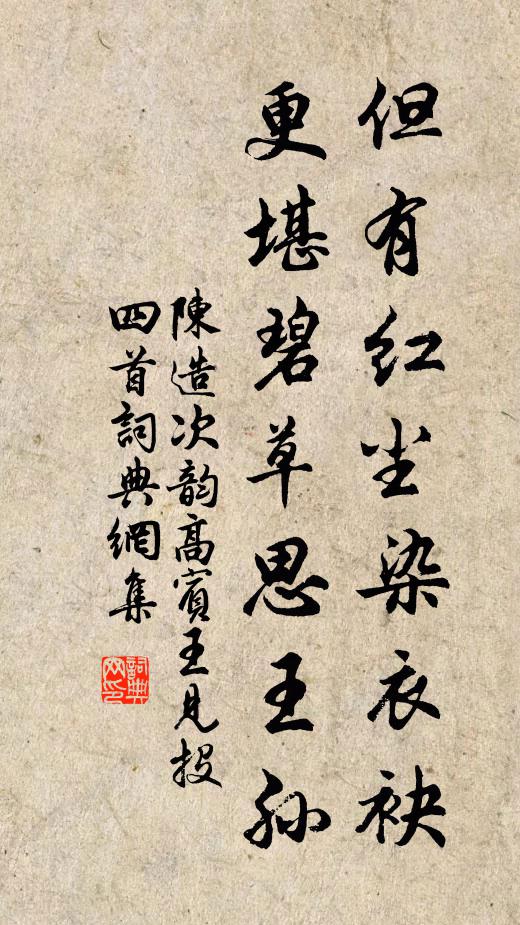 但有红尘染衣袂
更堪碧草思王孙
陳造次韵高賓王見投
四首詞典網集
詞典网印